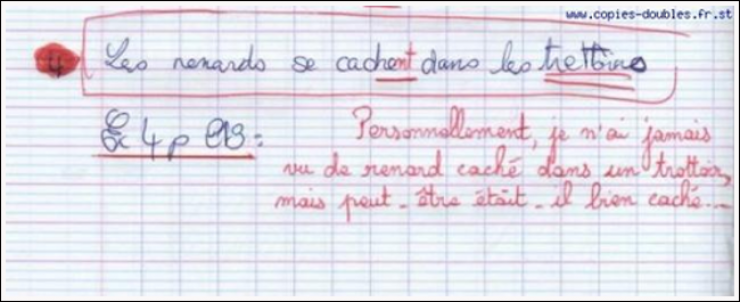 www.copies-doubles.fr.st
4 Les renards se cachent dans les trottoirs
Ex 4 p 98: Personnellement, je n'ai jamais
vu de renard caché dans un trottoir,
mais peut-être était-il bien caché...